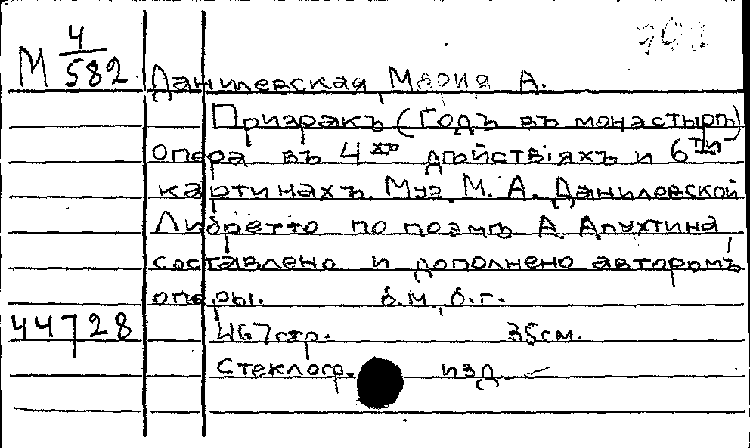 М 4/582
Данилевская, Мария А.
Призракъ (Годъ въ монастырѣ)
Опера въ 4хъ дѣйствіяхъ и 6ти
картинахъ. Муз. М. А. Данилевской
Либретто по поэмѣ А. Апухтина,
составлено и дополнено авторомъ
оперы. б.м., б.г.
44728 467 стр. 35 см.
Стеклогр. изд.